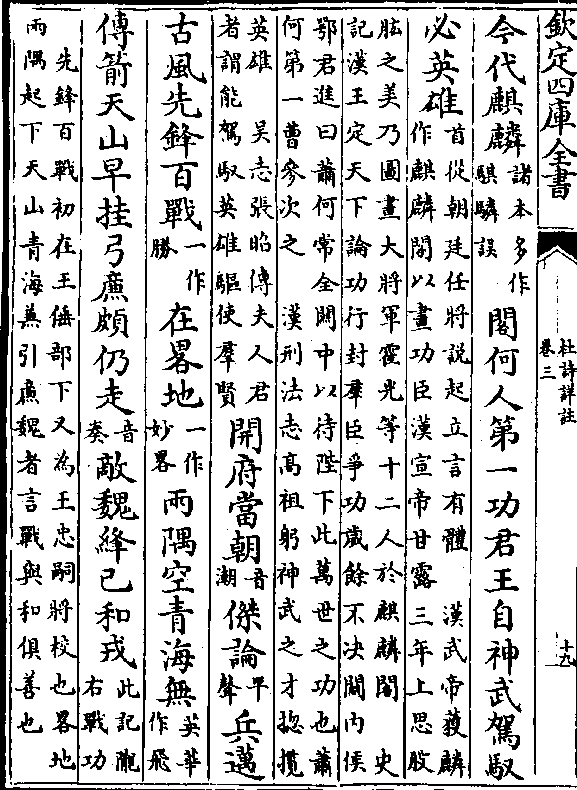 欽定四庫全書
杜詩詳註
卷三
十九
今代麒麟
諸本多作
騏驎誤
閣何人第一功君王自神武駕馭
必英雄
首從朝廷任將説起立言有體　漢武帝獲麟
作麒麟閣以畫功臣漢宣帝甘露三年上思股
肱之美乃圖畫大將軍霍光等十二人於麒麟閣　史
記漢王定天下論功行封羣臣爭功歲餘不决關内侯
鄂君進曰蕭何常全關中以待陛下此萬世之功也蕭
何第一曹參次之　漢刑法志高祖躬神武之才摠攬
英雄　吴志張昭傳夫人君
者謂能駕馭英雄驅使羣賢
開府當朝
音
潮
傑論
平
聲
兵邁
古風先鋒百戰
一作
勝
在畧地
一作
妙畧
兩隅空青海無
英華
作飛
傳箭天山早挂弓㢘頗仍走
音
奏
敵魏絳已和戎
此記隴
右戰功
先鋒百戰初在王倕部下又為王忠嗣將校也畧地
兩隅起下天山青海兼引㢘魏者言戰與和俱善也